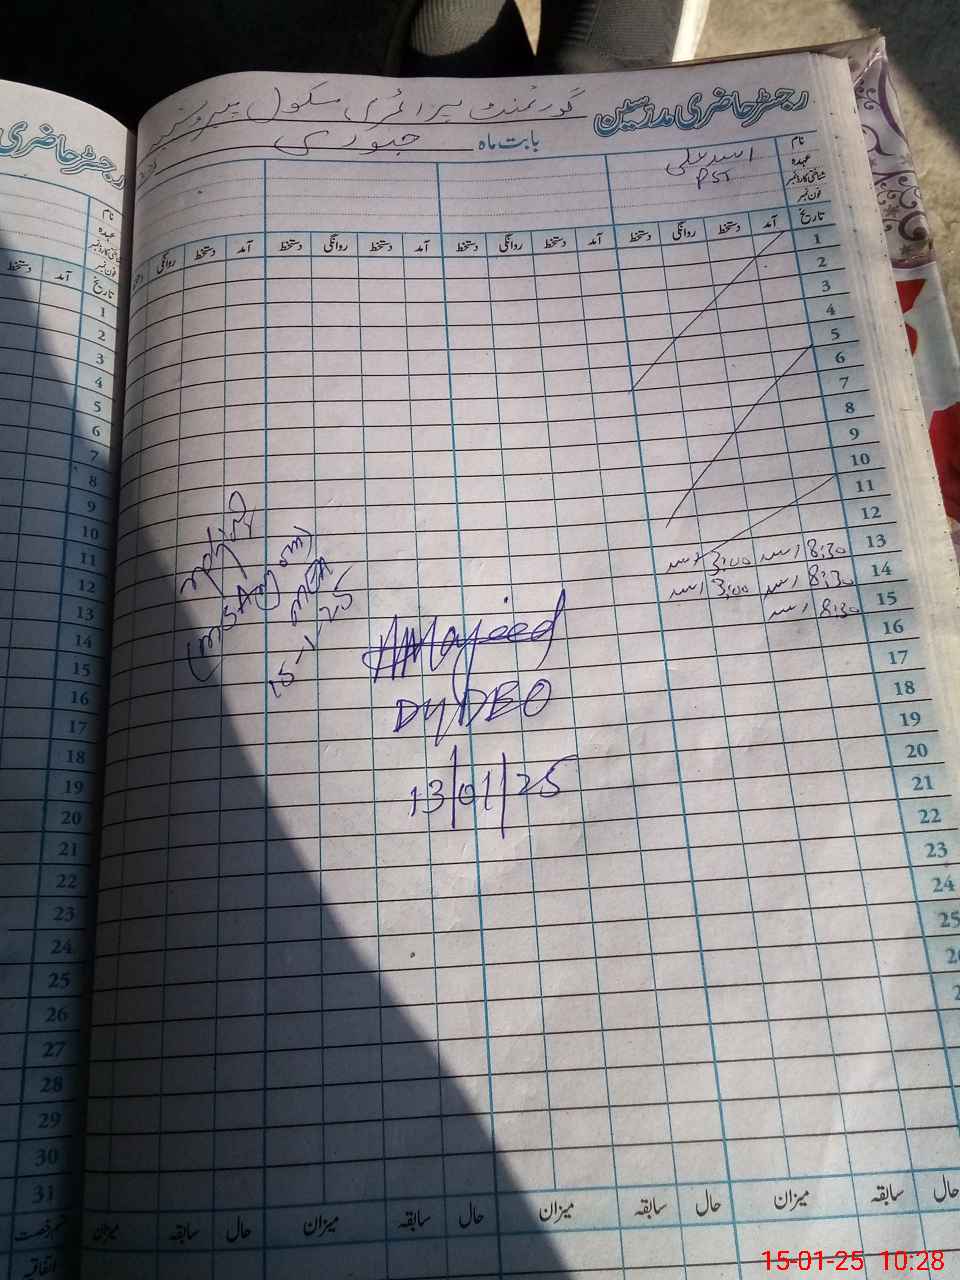 رجسٹر حاضری مدرسین گورنمنٹ پرائمری سکول
بابت ماہ جنوری
نام اسد علی
عہدہ PST
شناختی کارڈ نمبر
فون نمبر
تاریخ آمد دستخط روانگی دستخط آمد دستخط روانگی دستخط آمد دستخط روانگی دستخط آمد دستخط روانگی
1
2
3
4
5
6
7
8
9
10
11
12
13 8:30 اسد 3:00 اسد
14 8:30 اسد 3:00 اسد
15 8:30 اسد
16
17
18
19
20
21
22
23
24
25
MEA
15-1-25
AMajeed
Dy DEO
13/01/25
حال سابقہ میزان حال سابقہ میزان حال سابقہ میزان حال سابقہ میزان
رجسٹر حاضری
نام
عہدہ
شناختی کارڈ نمبر
فون نمبر
تاریخ آمد دستخط
1
2
3
4
5
6
7
8
9
10
11
12
13
14
15
16
17
18
19
20
21
22
23
24
25
26
27
28
29
30
31
اتفاقیہ
15-01-25 10:28